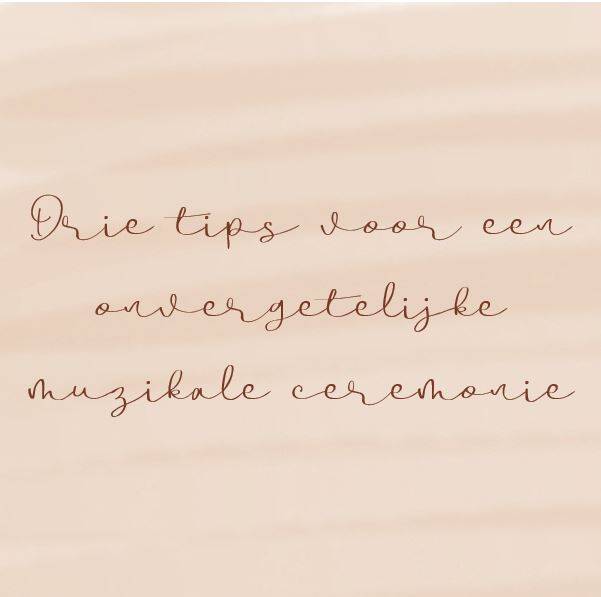 Drie tips voor een
onvergetelijke
muzikale ceremonie